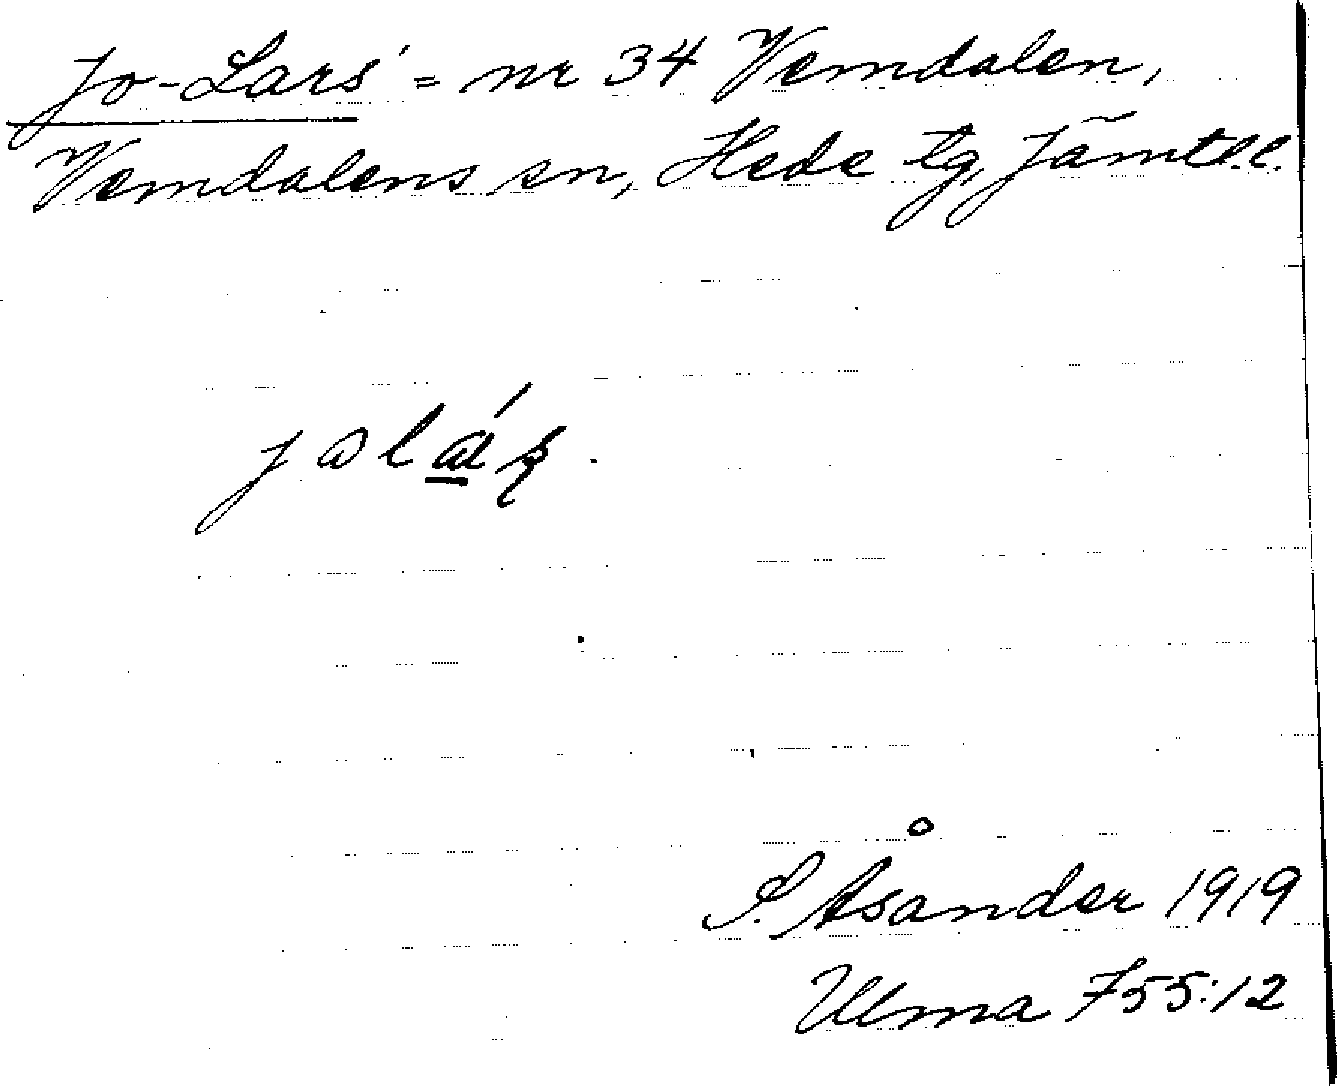 Jo-Lars' = nr 34 Vemdalen,
Vemdalens sn, Hede tg, Jämtl. l.
S. Åsander 1919
Ulma 755:12